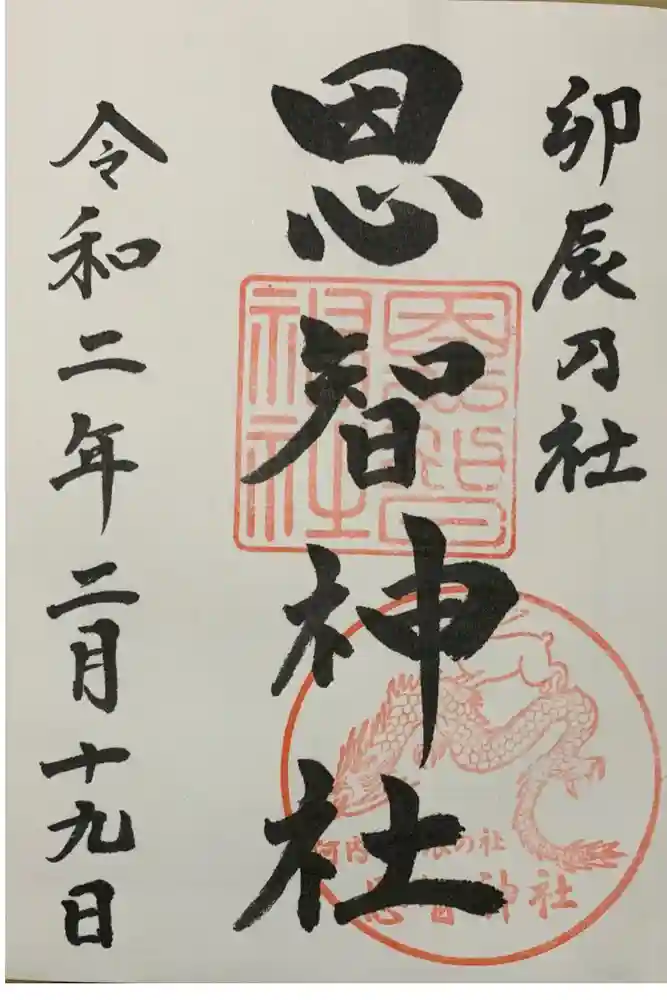 卯辰乃社
恩智神社
令和二年二月十九日
恩智神社
の社
恩智神社